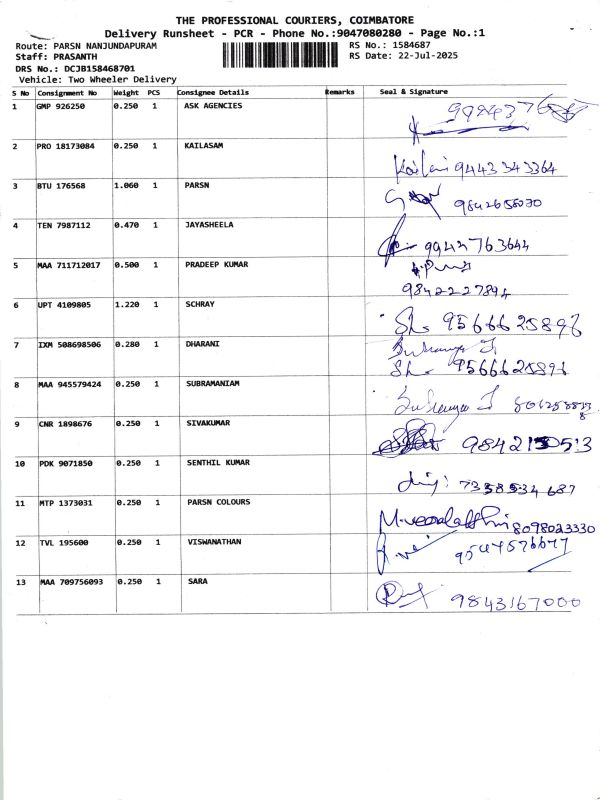 THE PROFESSIONAL COURIERS, COIMBATORE
Delivery Runsheet - PCR - Phone No.:9047080280 - Page No.:1
Route: PARSN NANJUNDAPURAM RS No.: 1584687
Staff: PRASANTH RS Date: 22-Jul-2025
DRS No.: DCJB158468701
Vehicle: Two Wheeler Delivery
S No Consignment No Weight PCS Consignee Details Remarks Seal & Signature
1 GMP 926250 0.250 1 ASK AGENCIES
2 PRO 18173084 0.250 1 KAILASAM
9443343364
3 BTU 176568 1.060 1 PARSN
4 TEN 7987112 0.470 1 JAYASHEELA
9942763644
5 MAA 711712017 0.500 1 PRADEEP KUMAR
9842227894
6 UPT 4109805 1.220 1 SCHRAY
7 IXM 508698506 0.280 1 DHARANI
8 MAA 945579424 0.250 1 SUBRAMANIAM
9 CNR 1898676 0.250 1 SIVAKUMAR
10 PDK 9071850 0.250 1 SENTHIL KUMAR
7358534687
11 MTP 1373031 0.250 1 PARSN COLOURS
8098023330
12 TVL 195600 0.250 1 VISWANATHAN
13 MAA 709756093 0.250 1 SARA
9843167000